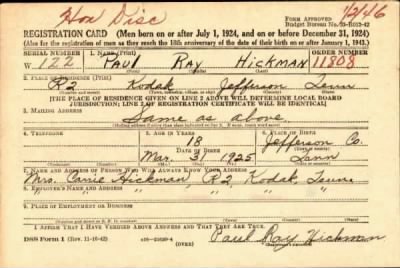 Hon Disc
1/2/46
FORM APPROVED
Budget Bureau No. 33-R012-42
REGISTRATION CARD—(Men born on or after July 1, 1924, and on or before December 31, 1924)
(Also for the registration of men as they reach the 18th anniversary of the date of their birth on or after January 1, 1943.)
SERIAL NUMBER 1. NAME (Print) ORDER NUMBER
W. 122 PAUL RAY HICKMAN 11808
2. PLACE OF RESIDENCE (Print)
R2 Kodak Jefferson Tenn
[THE PLACE OF RESIDENCE GIVEN ON LINE 2 ABOVE WILL DETERMINE LOCAL BOARD
JURISDICTION; LINE 2 OF REGISTRATION CERTIFICATE WILL BE IDENTICAL]
3. MAILING ADDRESS
Same as above.
4. TELEPHONE 5. AGE IN YEARS 6. PLACE OF BIRTH
18 Jefferson Co.
DATE OF BIRTH
Mar. 31 1925 Tenn
7. NAME AND ADDRESS OF PERSON WHO WILL ALWAYS KNOW YOUR ADDRESS
Mrs. Carrie Hickman, R2, Kodak, Tenn.
8. EMPLOYER'S NAME AND ADDRESS
9. PLACE OF EMPLOYMENT OR BUSINESS
I AFFIRM THAT I HAVE VERIFIED ABOVE ANSWERS AND THAT THEY ARE TRUE.
DSS Form 1 (Rev. 11-16-42) (OVER) Paul Ray Hickman